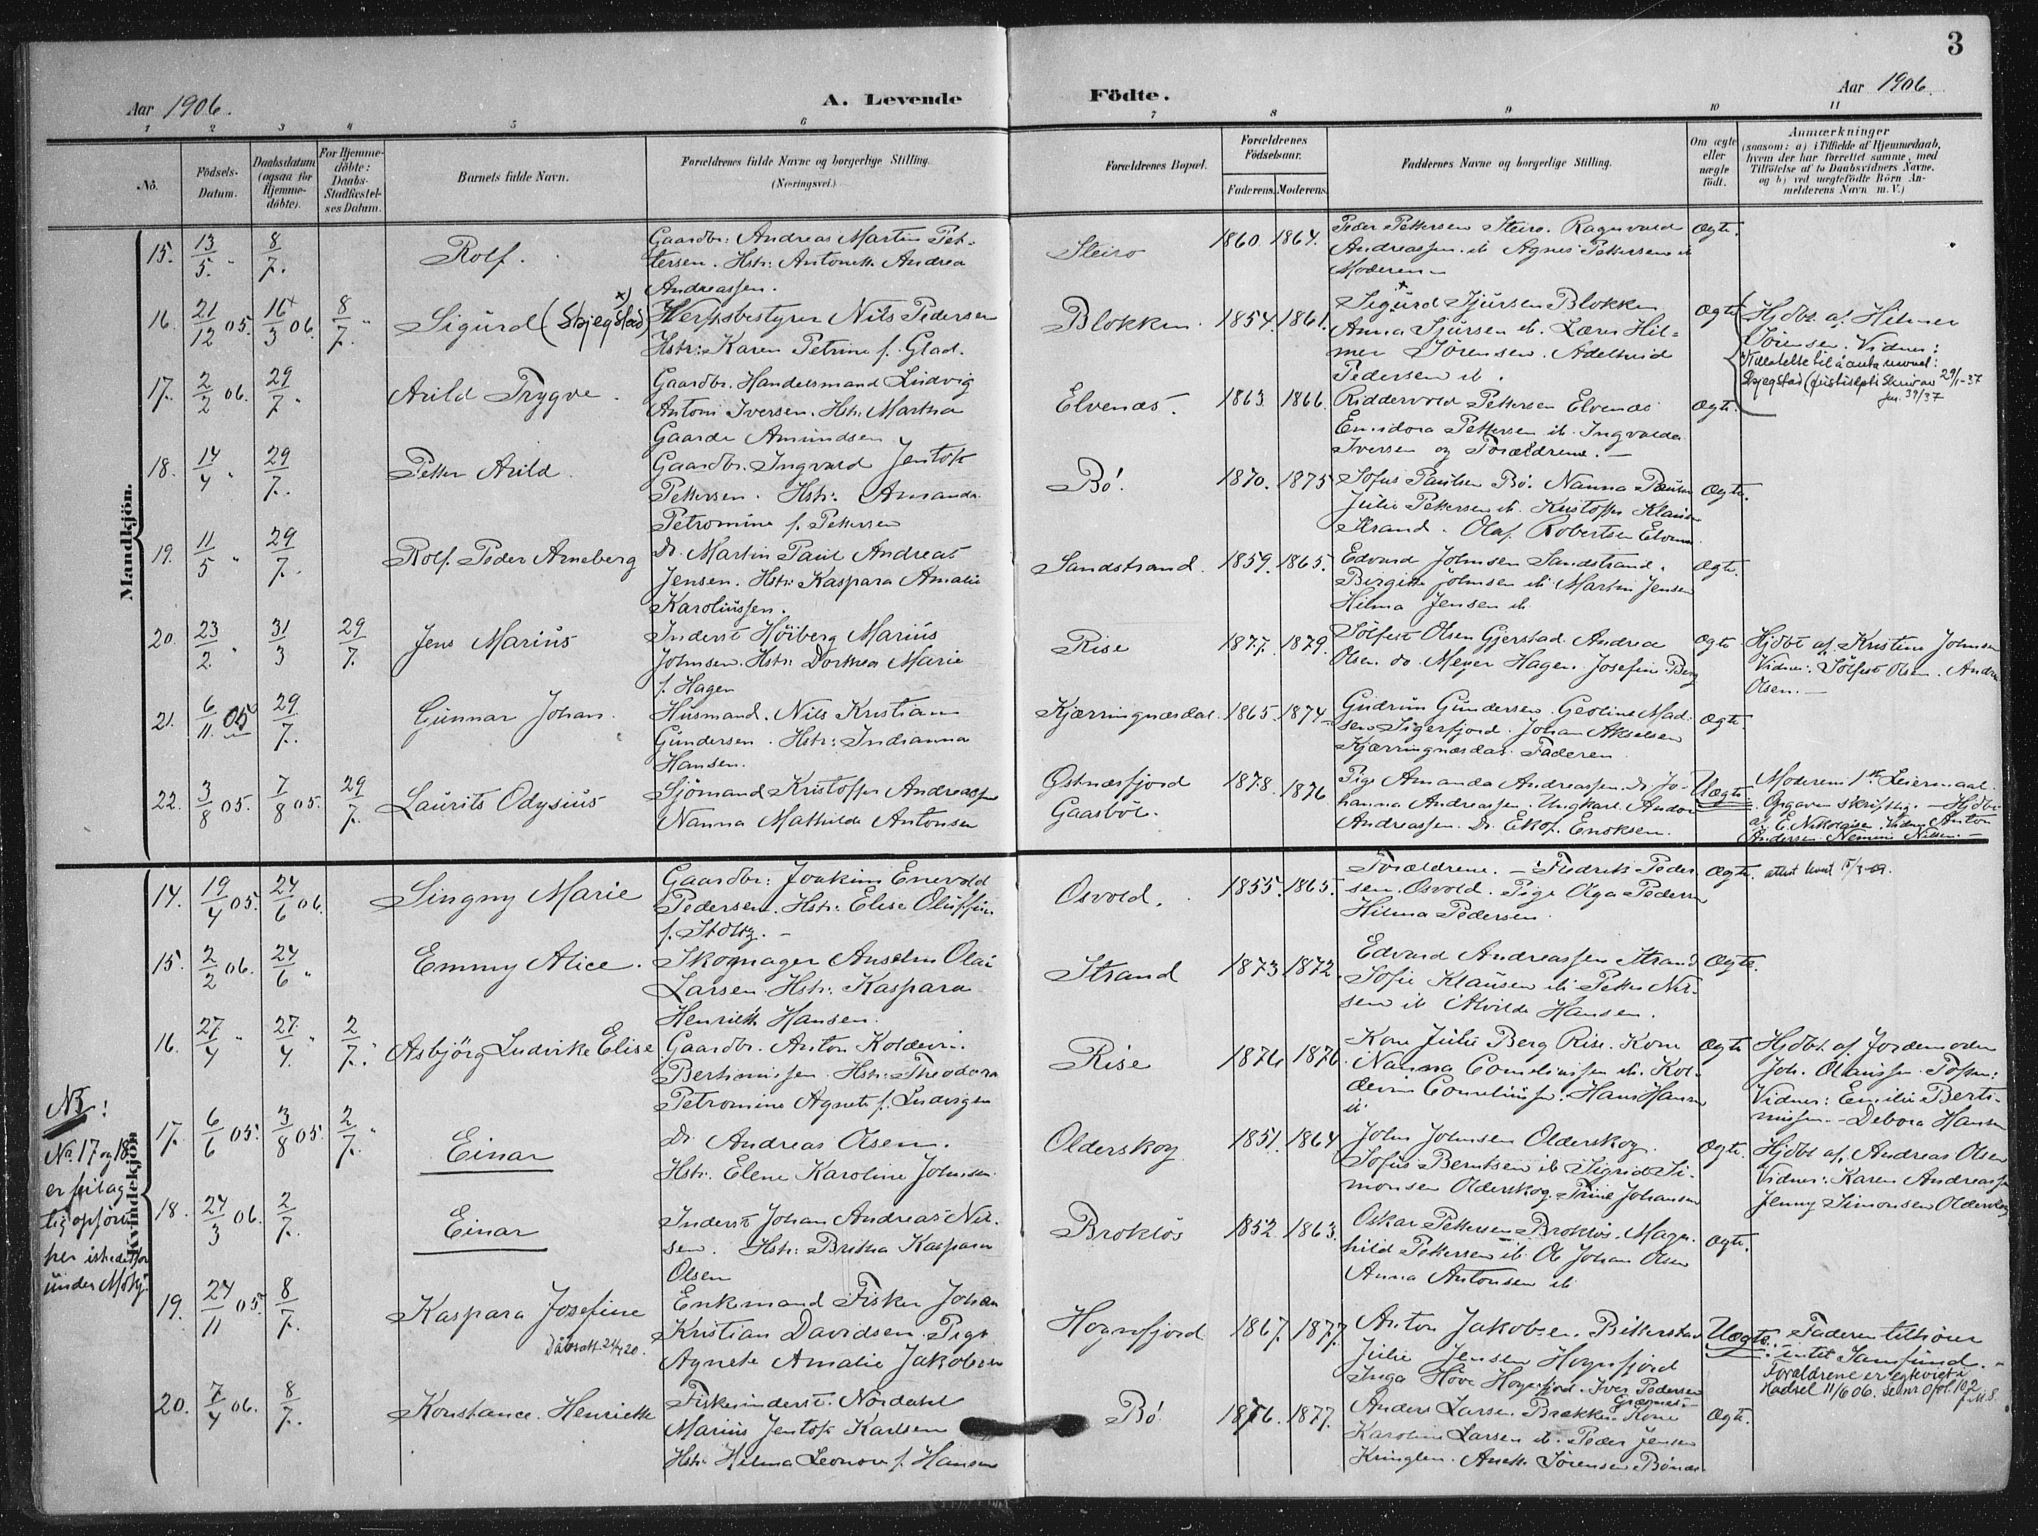 3
Aar 1906.
A. Levende
Födte.
Aar 1906.
1 2 3 4 5 6 7 8 9 10 11
No.
Födsels-Datum.
Daabsdatum (ogsaa for Hjemme-döbte).
For Hjemme-döbte: Daabs-Stadfæstel-ses Datum.
Barnets fulde Navn.
Forældrenes fulde Navne og borgerlige Stilling.
(Næringsvei.)
Forældrenes Bopæl.
Forældrenes Födselsaar.
Faderens. Moderens.
Faddernes Navne og borgerlige Stilling.
Om ægte eller uægte födt.
Anmærkninger
(saasom: a) i Tilfælde af Hjemmedaab,
hvem der har forrettet samme, med
Tilföielse af to Daabsvidners Navne,
og b) ved uægtefödte Börn An-
melderens Navn m. V.)
Mandkjön.
15. 13/5 " 8/7. Rolf.
Gaardbr: Andreas Martin Pet-
tersen. Hstr: Antonette Andrea
Andreassen.
Steiro 1860. 1864.
Peder Pettersen Steiro. Ragnvald
Andreassen ib. Agnes Pettersen ib
Moderen
Ægte.
16. 21/12 05. 16/3 06. 8/7. Sigurd (Skjegstad) x)
Hvervsbestyrer Nils Pedersen
Hstr: Karen Petrine f. Glad.
Blokken. 1854. 1861.
Sigurd Sjursen Blokken
Anna Sjursen ib. Lærer Hil-
mer Sörensen. Adelheid
Pedersen ib.
Ægte
Hjdbt. af Hilmer
Sörensen. Vidner:
Skjegstad 29/1-37
jnr. 39/37
17. 2/2 06. 29/7. Arild Trygve.
Gaardbr. Handelsmand Ludvig
Anton Iversen. Hstr: Martha
Gaarde Amundsen
Elvenæs. 1863. 1866.
Riddervold Pettersen Elvenæs
Emidora Pettersen ib. Ingvalda
Iversen og Forældrene.
Ægte.
18. 14/4 " 29/7. Petter Arild.
Gaardbr. Ingvard Jentoft
Pettersen. Hstr: Amanda
Petromine f. Pettersen
Bö. 1870. 1875
Sofus Paulsen Bö. Nanna Paulsen
Julie Pettersen ib. Kristoffer Klausen
Strand. Olaf Robertsen Elvenæs
Ægte.
19. 11/5 " 29/7. Rolf Peder Arneberg
Do. Martin Paul Andreas
Jensen. Hstr: Kaspara Amalie
Karoliussen.
Sandstrand. 1859. 1865.
Edvard Johnsen Sandstrand.
Birgitte Johnsen ib. Martin Jensen
Hilma Jensen ib.
Ægte.
20. 23/2 " 31/3 29/7. Jens Marius
Inderst Höiberg Marius
Johnsen. Hstr: Dorthea Marie
f. Hagen
Rise 1877. 1879.
Sölfest Olsen Gjerstad. Andrea
Olsen do. Meyer Hagen. Josefine Berg
Ægte
Hjdbt af Kristine Johnsen
Vidner: Sölfest Olsen. Andrea
Olsen.
21. 6/11 05 29/7. Gunnar Johan.
Husmand. Nils Kristian
Gundersen. Hstr: Indianna
Hansen.
Kjærringnæsdal. 1865. 1874
Gudrun Gundersen. Geoline Mad-
sen Sigerfjord. Johan Akselsen
Kjærringnæsdal. Faderen
Ægte.
22. 3/8 05. 7/8 05. 29/7. Laurits Odysius
Sjömand Kristoffer Andreassen
Nanna Mathilde Antonsen
Östnæsfjord
Gaasböl. 1878. 1876
Pige Amanda Andreassen. do. Jo-
hanna Andreassen. Ungkarl Andor
Andreassen. Do. Ekof. Enoksen.
Uægte
Moderens 1ste Leiermaal.
Opgaven skriftlig. — Hjdbt
af E. Nikolaisen. Vidner Anton
Andersen. Nilsen.
Kvindekjön
14. 19/4 05. 24/6 06. Singny Marie
Gaardbr: Joakim Enevold
Pedersen. Hstr: Elise Oluffine
f. Stoltz.
Osvold. 1855. 1865.
Forældrene. — Fredrik Peder-
sen. Osvold. Pige Olga Pedersen
Hilma Pedersen.
Ægte. 5/3-09.
15. 2/2 06. 24/6 " Emmy Alice.
Skomager Anselm Olai
Larsen. Hstr: Kaspara
Henriette Hansen.
Strand 1873. 1872.
Edvard Andreassen Strand
Sofie Klausen ib. Petter Nil-
sen ib. Alvilde Hansen.
Ægte.
16. 27/4 " 27/4. " 2/7. Asbjörg Ludvikke Elise
Gaardbr. Anton Koldevin
Bertinussen. Hstr: Theodora
Petromine Agnete f. Ludvigsen
Rise 1876 1876.
Kone Julie Berg Rise. Kone
Nanna Corneliussen ib. Kol-
devin Corneliussen. Hans Hansen
ib
Ægte
Hjdbt. af Jordemoder
Joh. Olaussen.
Vidner: Emilie Berti-
nussen. Debora Hansen
NB:
No. 17 og 18
er feilag-
tig opförte
her istedetfor
under Mdkj.
17. 6/6 05. 3/8 05. 2/7. " Einar
Do. Andreas Olsen.
Hstr: Elene Karoline Johnsen
Olderskog 1851. 1864
John Johnsen Olderskog.
Sofus Berntsen ib. Sigrid Si-
monsen Olderskog. Trine Johansen
Ægte.
Hjdbt af Andreas Olsen
Vidner: Karen Andreassen
Jenny Simonsen Olderskog
18. 24/3 06. 2/7. Einar
Inderst Johan Andreas Nil-
sen. Hstr: Britha Kaspara
Olsen
Broklös 1852. 1863.
Oskar Pettersen Broklös. Magn-
hild Pettersen ib. Ole Johan Olsen
Anna Antonsen ib
Ægte.
19. 24/11 05. 8/7. Kaspara Josefine
Dåbsatt. 24/4 20.
Enkemand Fisker Johan
Kristian Davidsen. Pige
Agnete Amalie Jakobsen
Hognfjord 1867. 1877.
Anton Jakobsen. Bitterstad
Julie Jensen Hognfjord
Inga Hove Hognfjord. Iver Pedersen
Uægte.
Faderen tilhörer
intet Samfund.
Foreldrene er egteviet i
Hadsel 11/6 06.
20. 7/4 06. 8/7. Konstance. Henriette
Fisker inderst. Nordahl
Marius Jentoft Karlsen
Hstr: Hilma Leonore f. Hansen
Bö 1876. 1877.
Anders Larsen. Brække. Kone
Karoline Larsen ib. Peder Jensen
Kringlen. Anette Sörensen Bönæs.
Ægte.